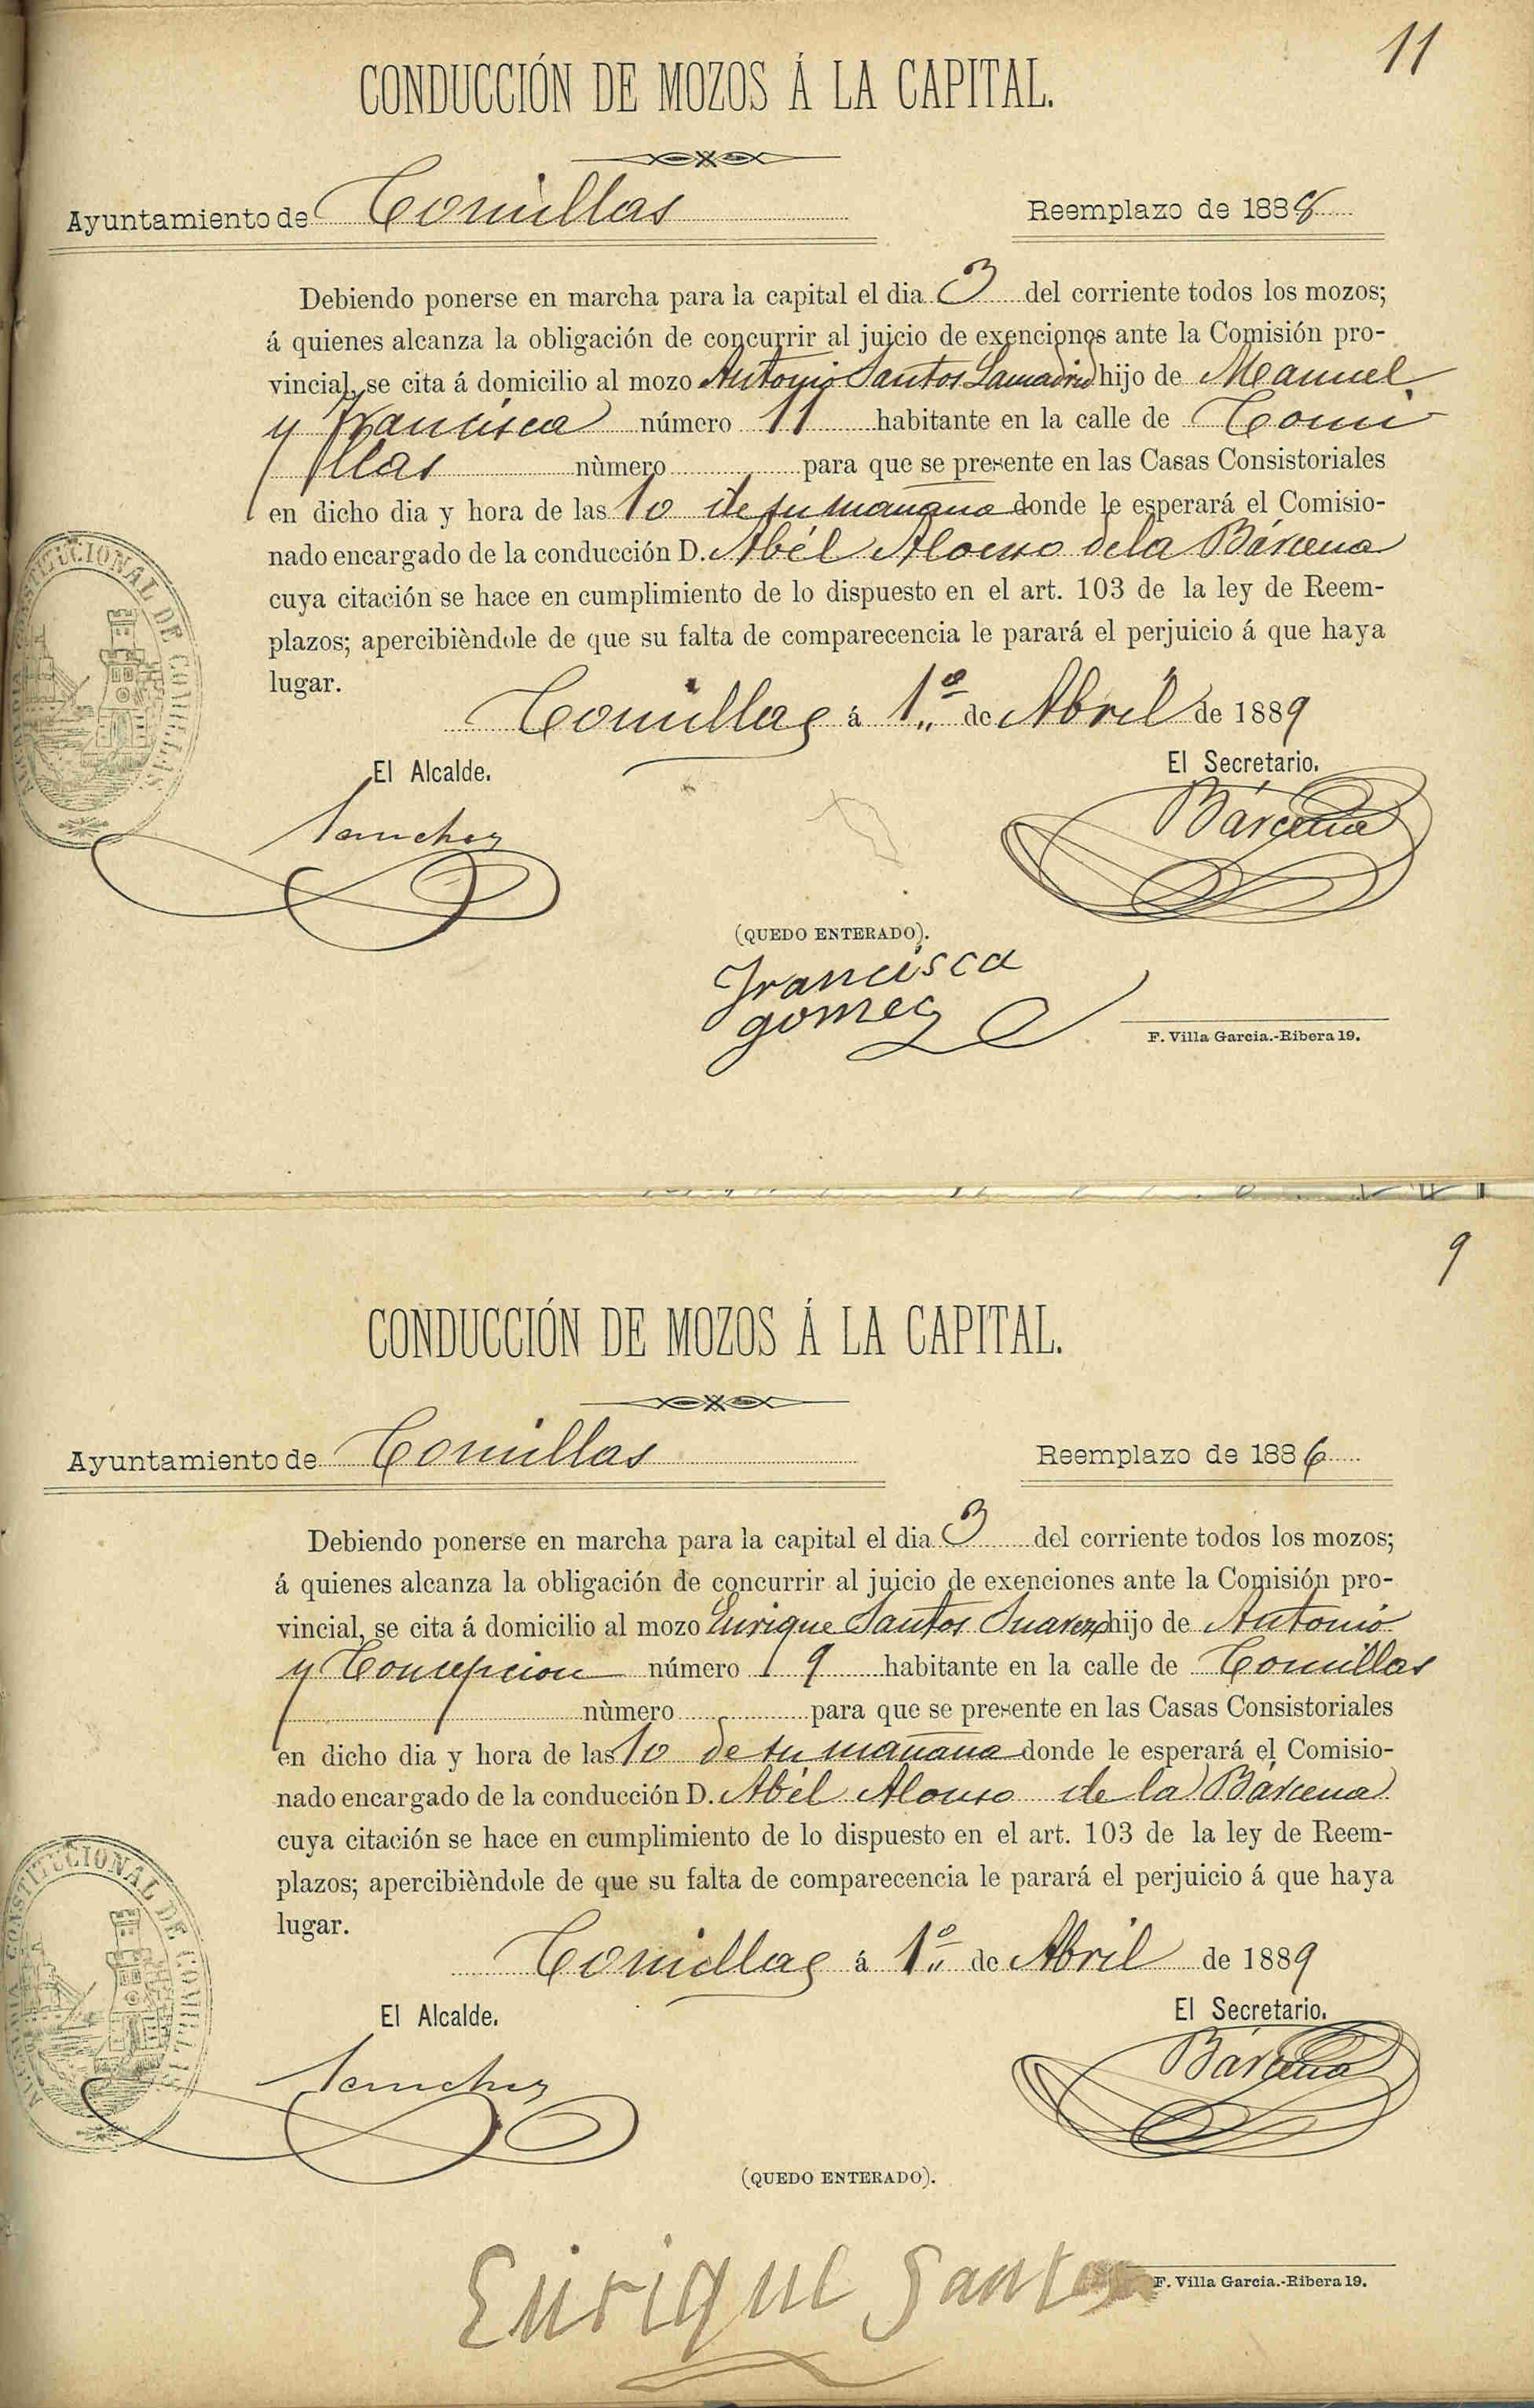 11
CONDUCCIÓN DE MOZOS Á LA CAPITAL.
Ayuntamiento de Comillas Reemplazo de 1888
Debiendo ponerse en marcha para la capital el dia 3 del corriente todos los mozos;
á quienes alcanza la obligación de concurrir al juicio de exenciones ante la Comisión pro-
vincial, se cita á domicilio al mozo Antonio Santos Lamadrid hijo de Manuel
y Francisca número 11 habitante en la calle de Comi
llas nùmero para que se presente en las Casas Consistoriales
en dicho dia y hora de las 10 de su mañana donde le esperará el Comisio-
nado encargado de la conducción D. Abél Alonso de la Bárcena
cuya citación se hace en cumplimiento de lo dispuesto en el art. 103 de la ley de Reem-
plazos; apercibièndole de que su falta de comparecencia le parará el perjuicio á que haya
lugar.
Comillas á 1º de Abril de 1889
El Alcalde. El Secretario.
Sanchez Bárcena
(QUEDO ENTERADO).
Francisca
gomez
F. Villa Garcia.-Ribera 19.
9
CONDUCCIÓN DE MOZOS Á LA CAPITAL.
Ayuntamiento de Comillas Reemplazo de 1886
Debiendo ponerse en marcha para la capital el dia 3 del corriente todos los mozos;
á quienes alcanza la obligación de concurrir al juicio de exenciones ante la Comisión pro-
vincial, se cita á domicilio al mozo Enrique Santos Suarez hijo de Antonio
y Concepcion número 9 habitante en la calle de Comillas
nùmero para que se presente en las Casas Consistoriales
en dicho dia y hora de las 10 de su mañana donde le esperará el Comisio-
nado encargado de la conducción D. Abél Alonso de la Bárcena
cuya citación se hace en cumplimiento de lo dispuesto en el art. 103 de la ley de Reem-
plazos; apercibièndole de que su falta de comparecencia le parará el perjuicio á que haya
lugar.
Comillas á 1º de Abril de 1889
El Alcalde. El Secretario.
Sanchez Bárcena
(QUEDO ENTERADO).
Enrique Santos
F. Villa Garcia.-Ribera 19.